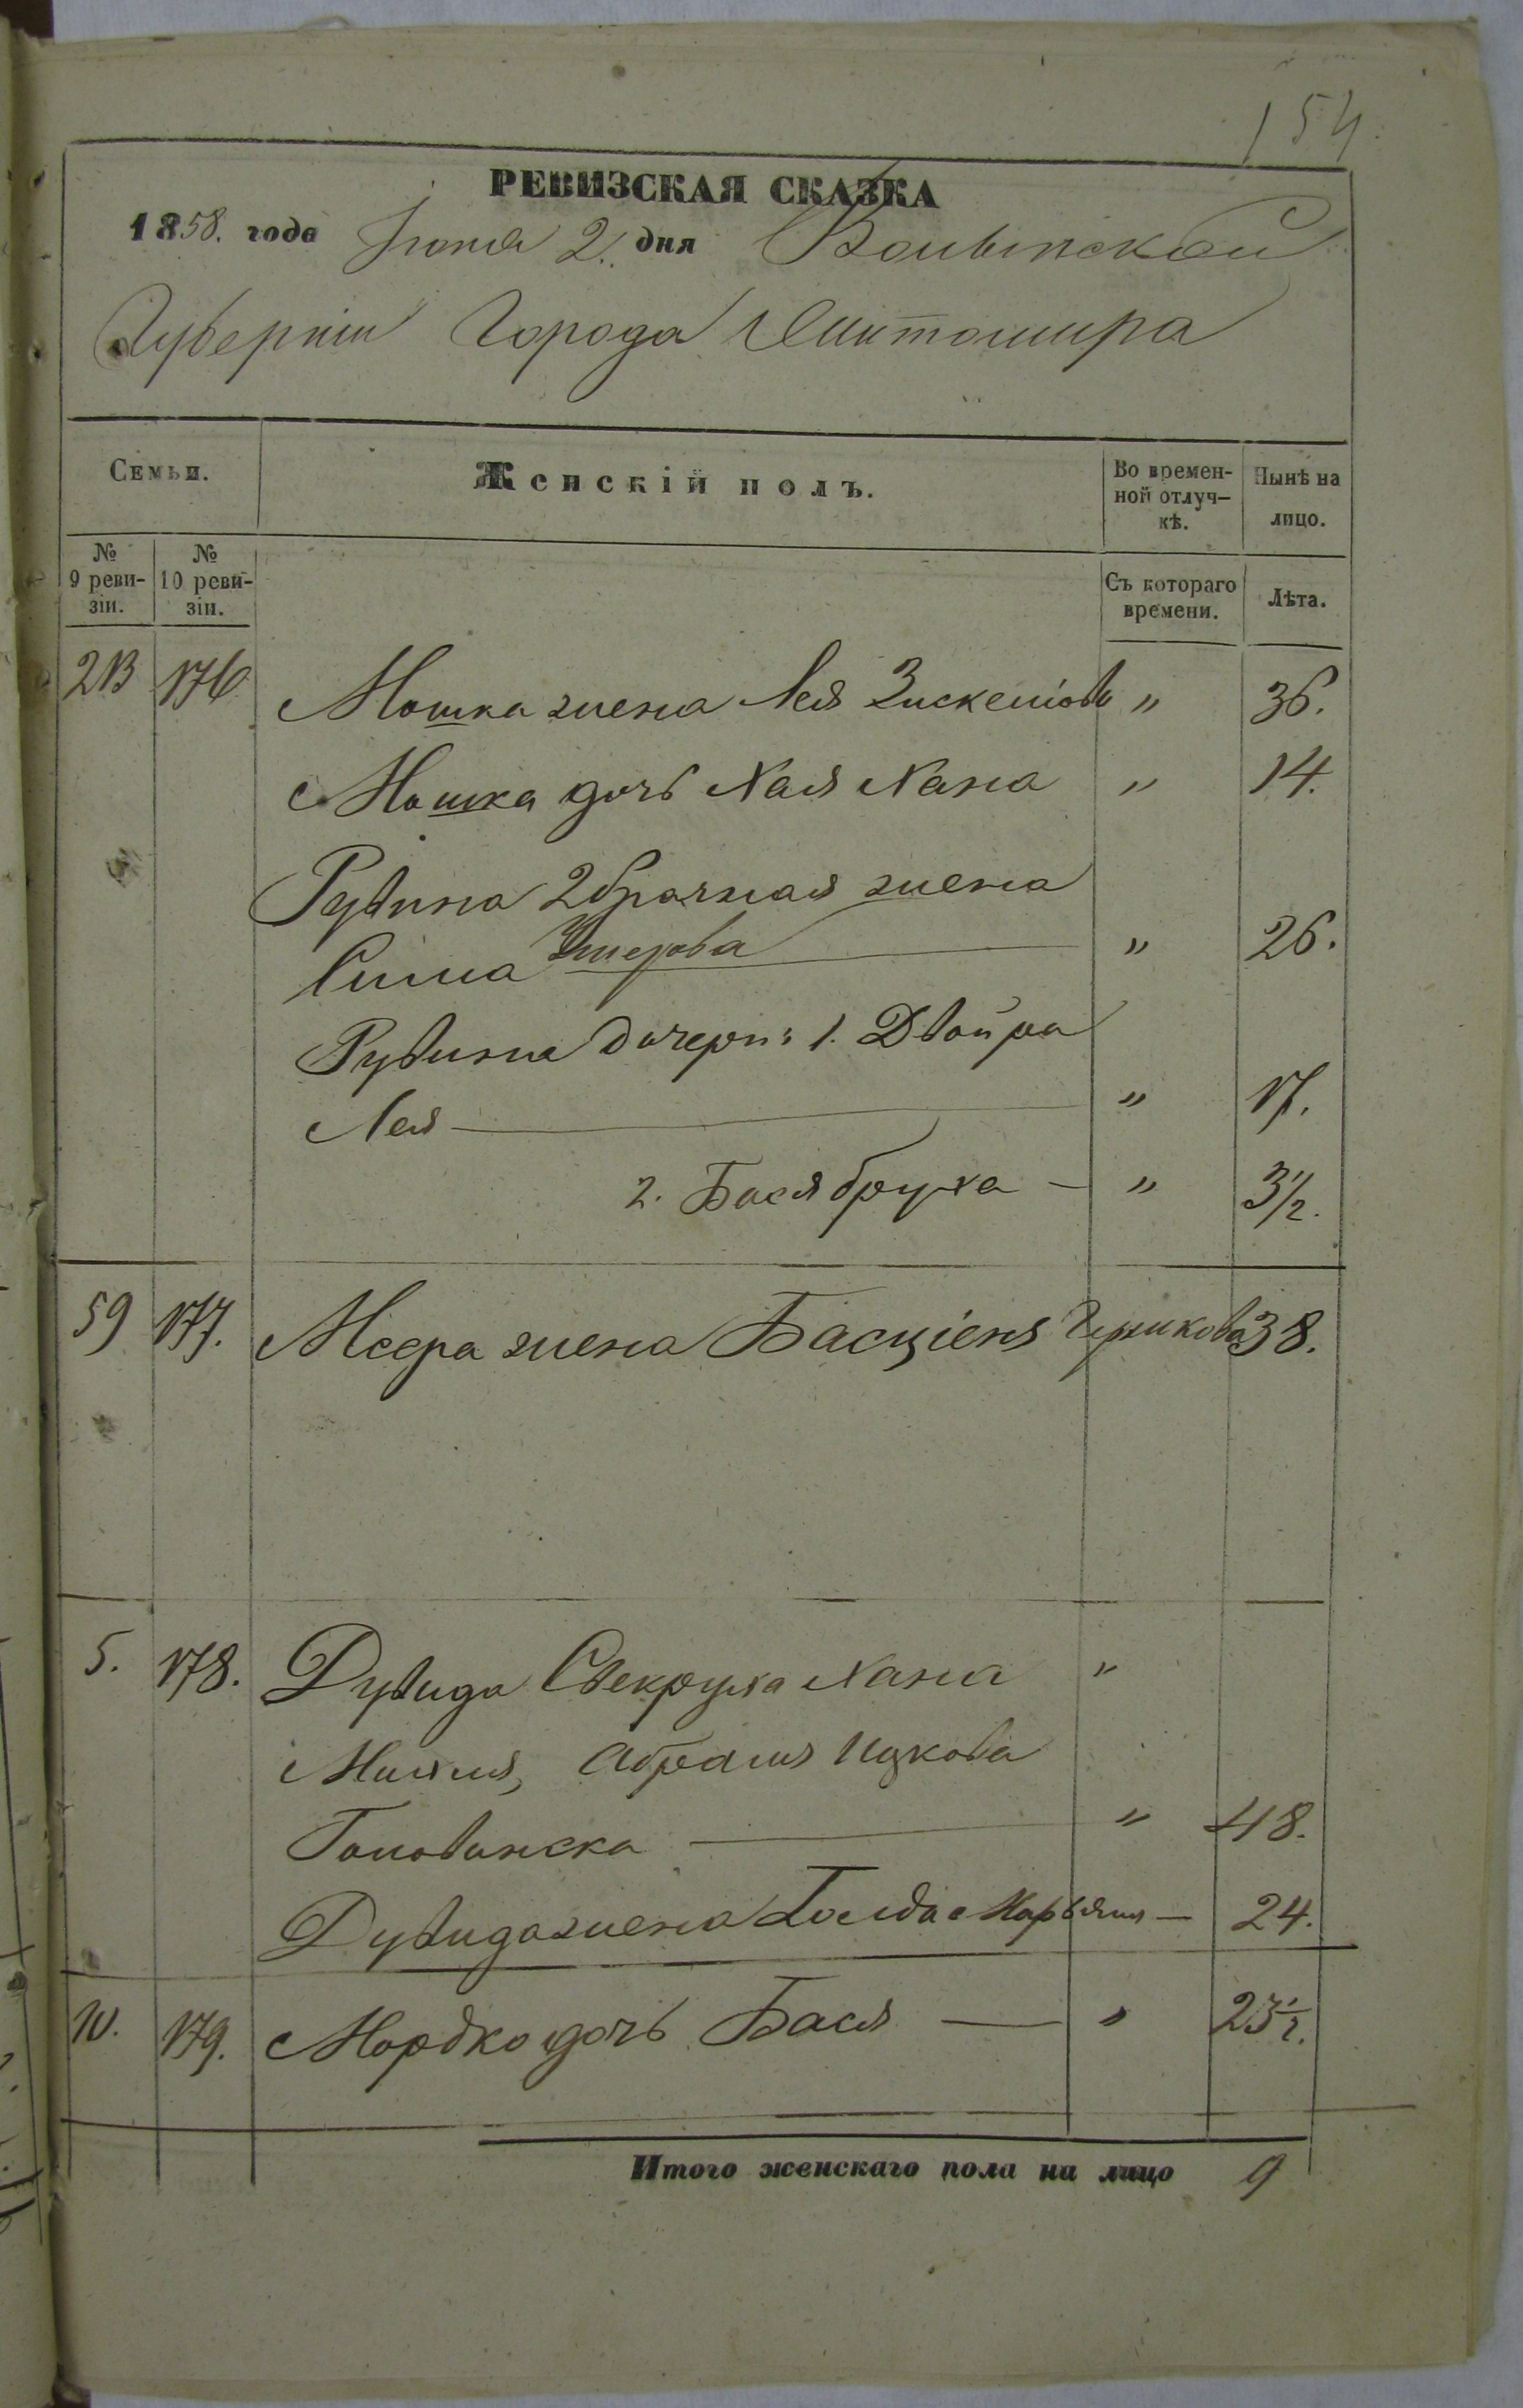 154.
РЕВИЗСКАЯ СКАЗКА
1858. года Іюня 2. дня Волынской
Губерніи Города Житомира
Семьи.
Женскій полъ.
Во времен-
ной отлуч-
кѣ.
Нынѣ на
лицо.
№
9 реви-
зіи.
№
10 реви-
зіи.
Съ котораго
времени.
Лѣта.
213 176 Мошка жена Лея " 36.
Мошка дочь Хая Хана " 14.
Рувина 2 брачная жена
Сима " 26.
Рувина дочери: 1. Двойра
Лея " 17.
2. Бася бруха — " 3 1/2.
59 177. Меера жена Басціеня 38.
5. 178. Дувида Свекруха Хана "
Абрама Ицкова
Головинска " 48.
Дувида жена Голда Марьяма — 24.
10. 179. Мордко дочь Бася — " 23 1/2.
Итого женскаго пола на лицо 9